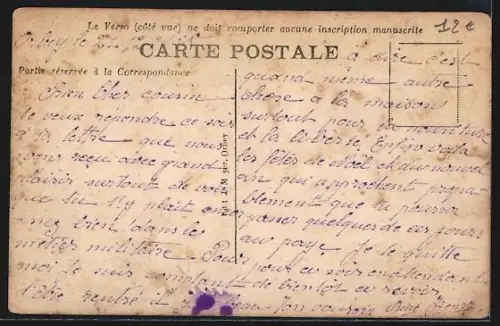 Le Verso (côté vue) ne doit comporter aucune inscription manuscrite
12€
CARTE POSTALE
Partie réservée à la Correspondance
Orbey le
Bien cher cousin
Je veux repondre ce soir
à ta lettre que nous
avons reçu avec grand
plaisir surtout de voir
que tu t'y plait
assez bien dans le
métier militaire. Pour
moi je suis content
d'être rentré à
à dire c'est
quand même autre
chose à la maison
surtout pour la nourriture
et la liberté. Enfin voila
les fêtes de Noël et du nouvel
an qui approchent
que tu pourra
passer quelques de ces jours
au pays. Je te quitte
pour ce soir en attendant
de bientôt se revoir
Ton cousin René